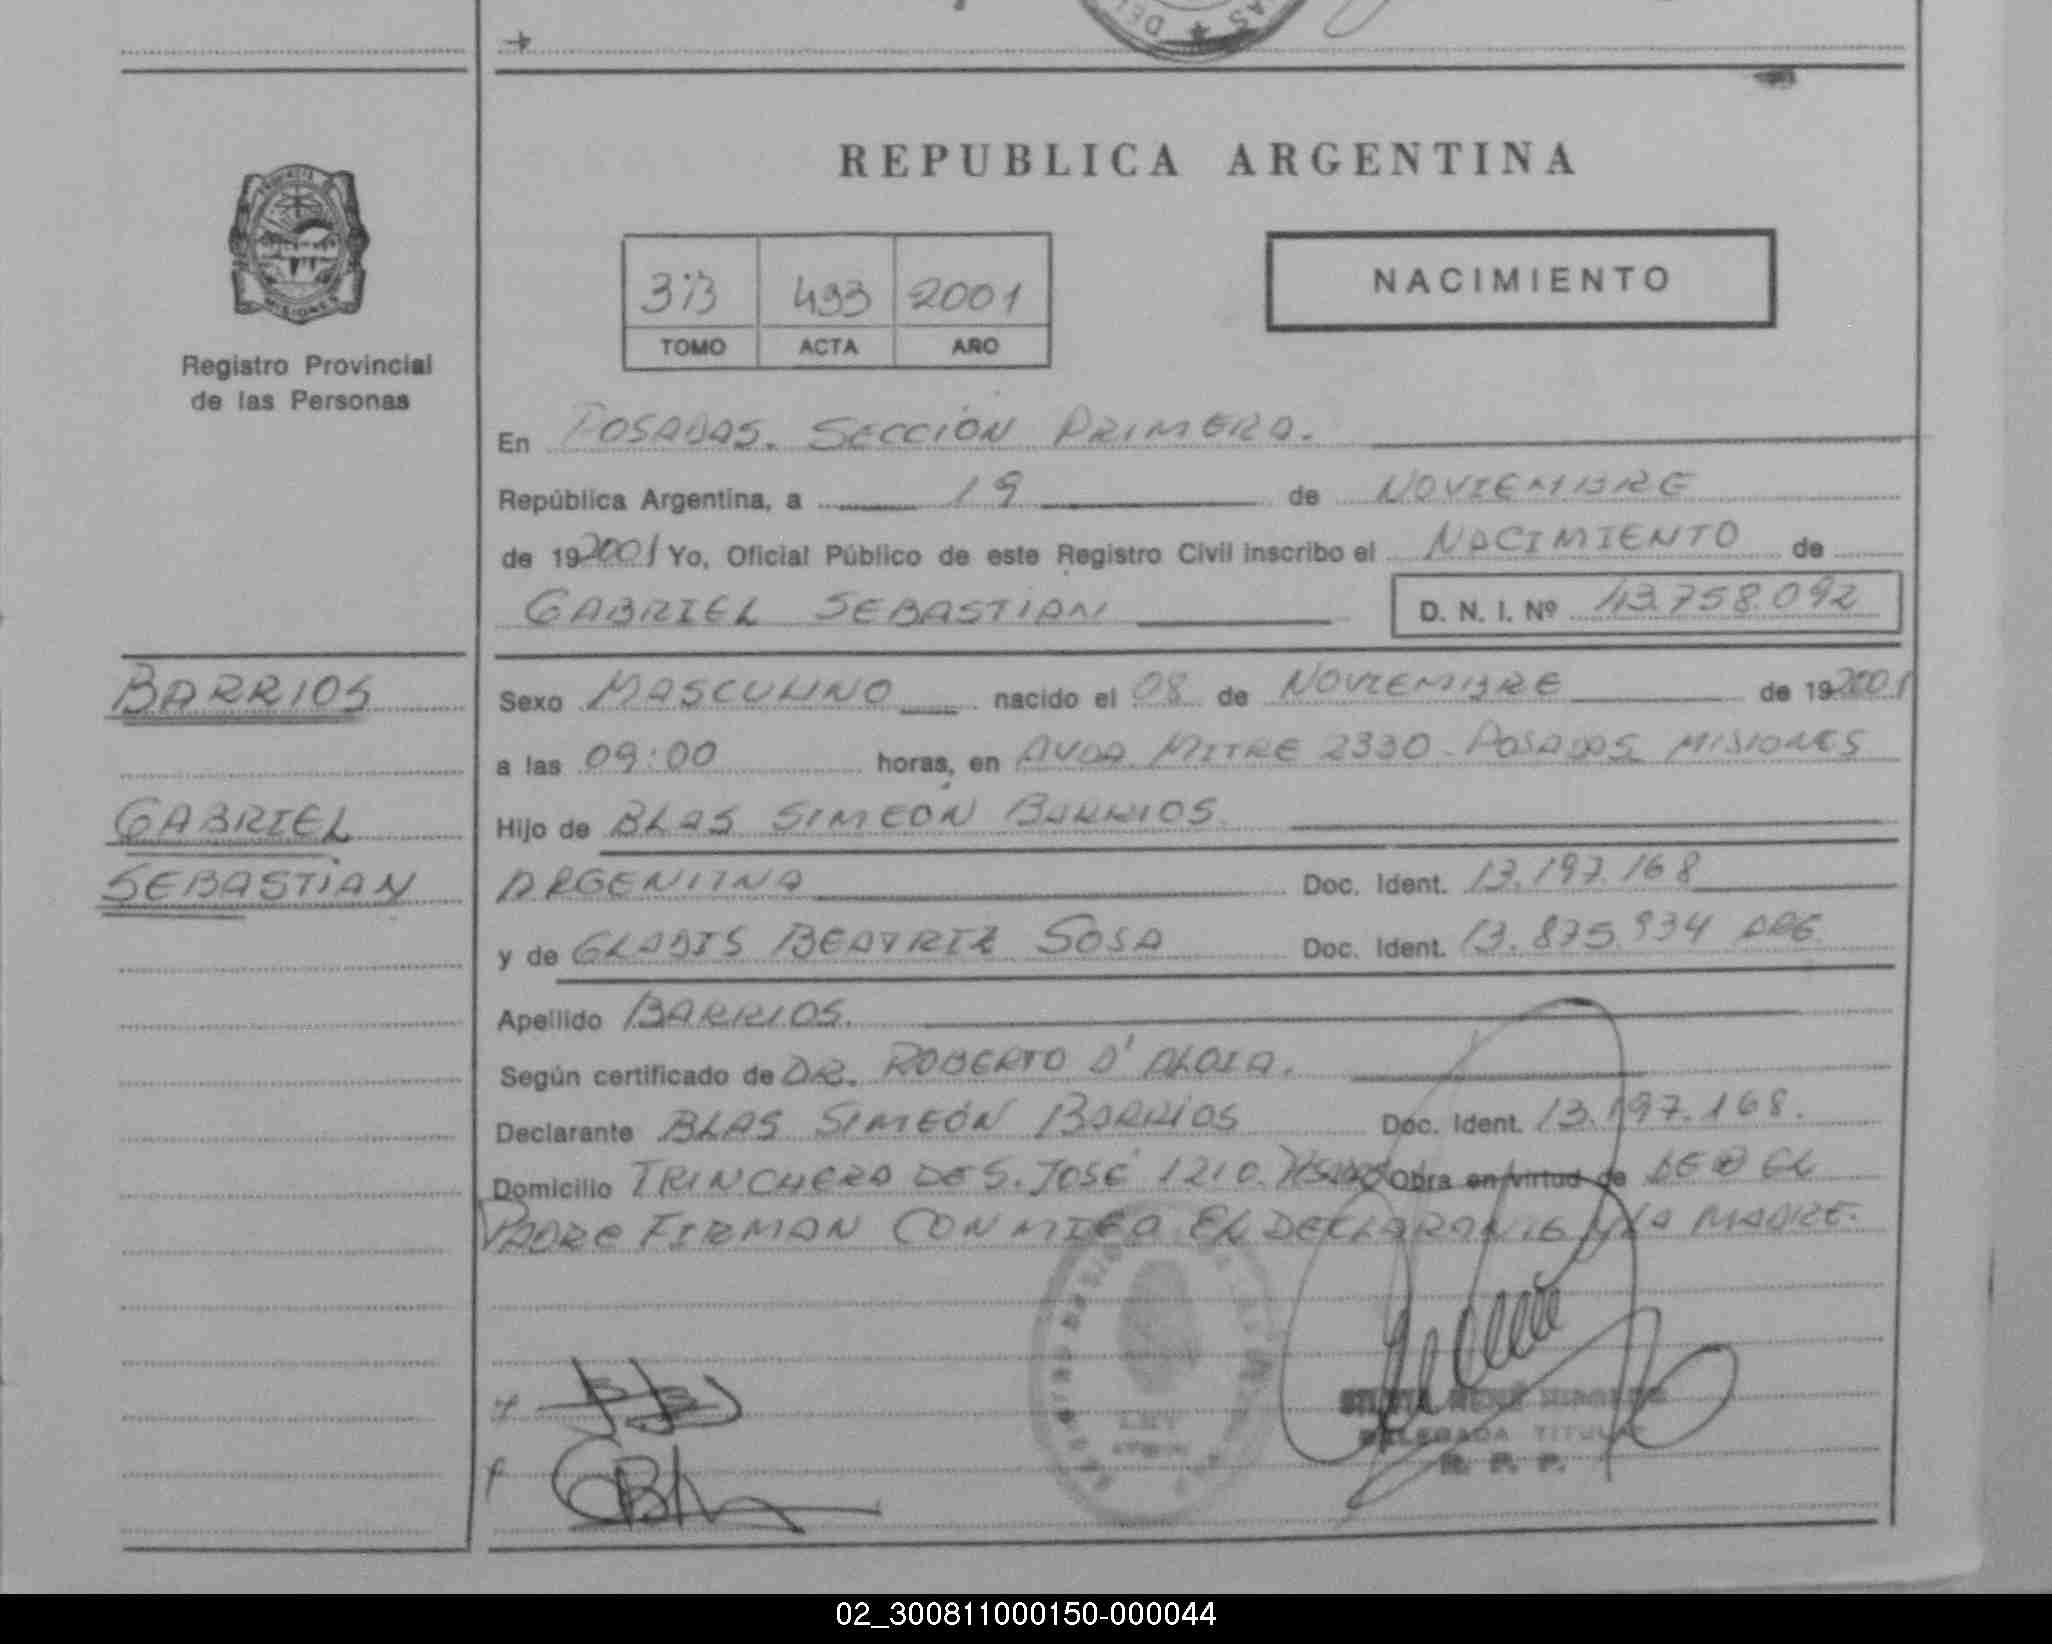 REPUBLICA ARGENTINA
PROVINCIA DE MISIONES
Registro Provincial
de las Personas
493 2001
TOMO ACTA AÑO
NACIMIENTO
En POSADAS. SECCIÓN PRIMERA.
República Argentina, a 19 de NOVIEMBRE
de 19 2001 Yo, Oficial Público de este Registro Civil inscribo el NACIMIENTO de
GABRIEL SEBASTIAN D. N. I. Nº 43.758.092
BARRIOS
GABRIEL
SEBASTIAN
Sexo MASCULINO nacido el 08 de NOVIEMBRE de 19 2001
a las 09:00 horas, en AVDA. MITRE 2330 - POSADAS MISIONES
Hijo de BLAS SIMEON BARRIOS.
ARGENTINA Doc. Ident. 13.197.168
y de GLADIS BEATRIZ SOSA Doc. Ident. 13.875.934 ARG.
Apellido BARRIOS.
Según certificado de DR. ROBERTO D'ALOIA.
Declarante BLAS SIMEÓN BARRIOS Doc. Ident. 13.197.168.
Domicilio TRINCHERA DE S. JOSÉ 1210. Obra en virtud de SER EL
PADRE FIRMAN CONMIGO EL DECLARANTE Y LA MADRE.
DELEGADA TITULAR
R. P. P.
02_300811000150-000044